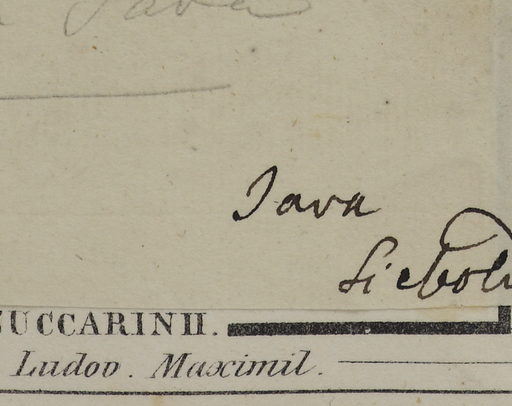 Java
Java
Siebold
ZUCCARINII.
Ludov. Maximil.